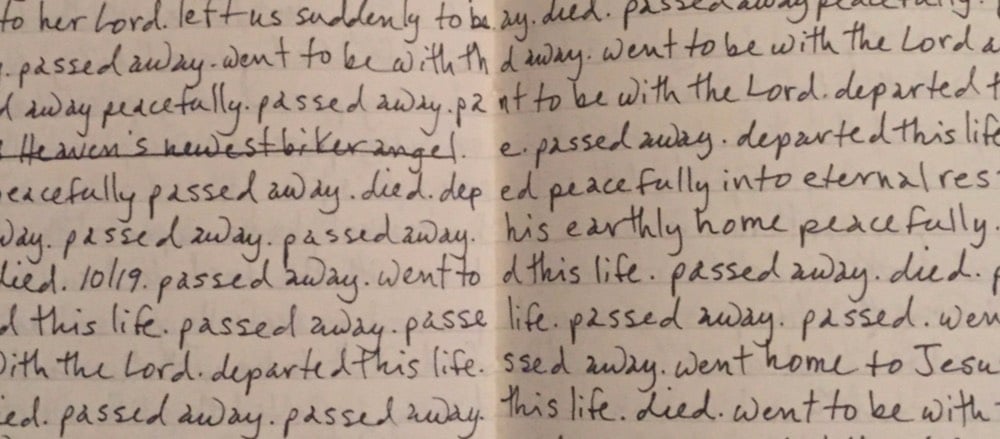 to her Lord. left us suddenly to be
. passed away. went to be with th
d away peacefully. passed away. pa
Heaven's newest biker angel.
eacefully passed away. died. dep
way. passed away. passed away.
died. 10/19. passed away. went to
d this life. passed away. passe
with the Lord. departed this life.
ied. passed away. passed away.
ay. died. passed away peacefully.
d away. went to be with the Lord a
nt to be with the Lord. departed t
e. passed away. departed this life
ed peacefully into eternal res
his earthly home peacefully.
d this life. passed away. died. p
life. passed away. passed. wen
ssed away. went home to Jesu
this life. died. went to be with